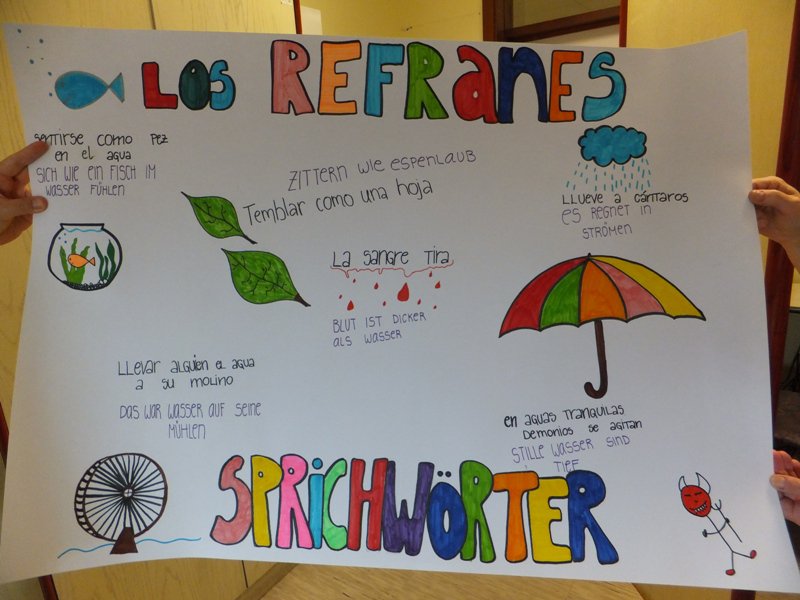 LOS REFRANES
SENTIRSE COMO PEZ
EN EL AGUA
SICH WIE EIN FISCH IM
WASSER FÜHLEN
ZITTERN WIE ESPENLAUB
Temblar como una hoja
LLUEVE A CÁNTAROS
ES REGNET IN
STRÖMEN
LA SANGRE TIRA
BLUT IST DICKER
ALS WASSER
LLEVAR ALGUIEN EL AGUA
A SU MOLINO
DAS WAR WASSER AUF SEINE
MÜHLEN
EN AGUAS TRANQUILAS
DEMONIOS SE AGITAN
STILLE WASSER SIND
TIEF
SPRICHWÖRTER